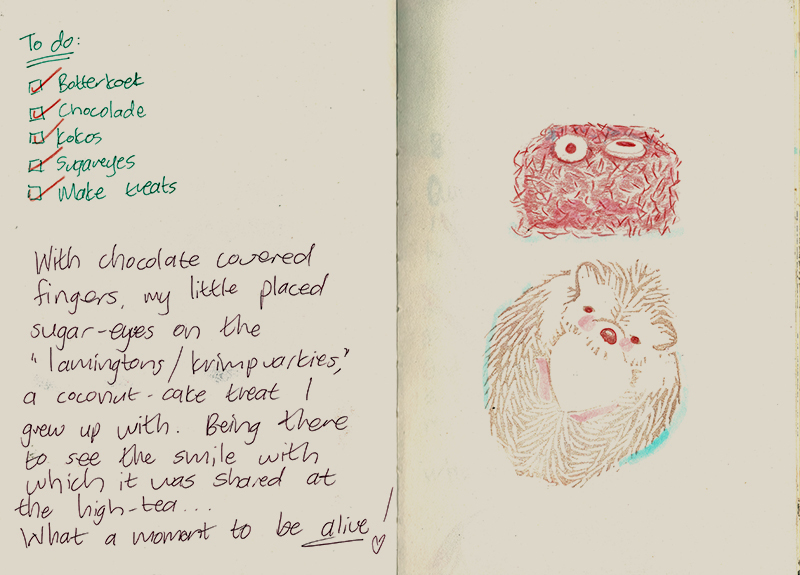 To do:
Botterkoek
Chocolade
kokos
Sugareyes
Make treats
With chocolate covered
fingers, my little placed
sugar-eyes on the
"lamingtons/krimpvarkies,"
a coconut-cake treat I
grew up with. Being there
to see the smile with
which it was shared at
the high-tea...
What a moment to be alive!